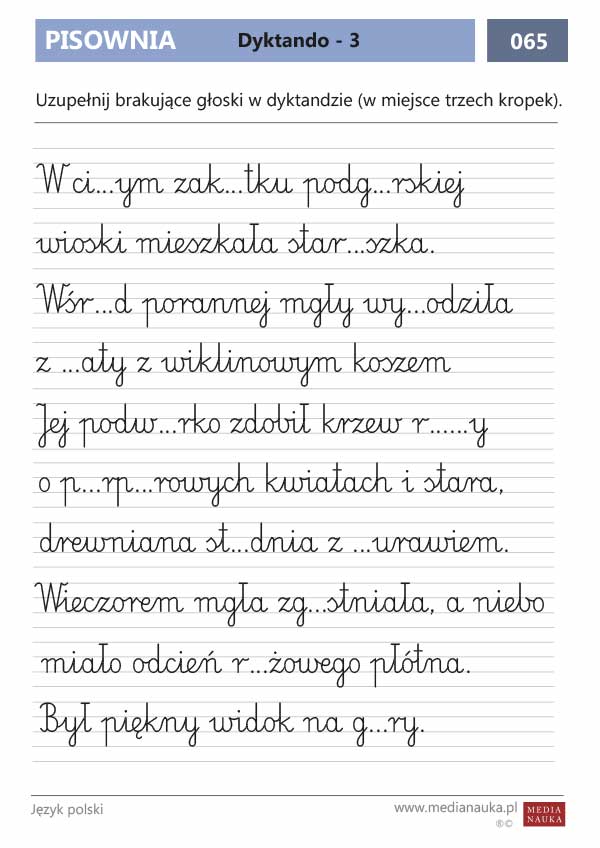 PISOWNIA Dyktando - 3 065
Uzupełnij brakujące głoski w dyktandzie (w miejsce trzech kropek).
W ci...ym zak...tku podg...rskiej
wioski mieszkała star...szka.
Wśr...d porannej mgły wy...odziła
z ...aty z wiklinowym koszem
Jej podw...rko zdobił krzew r......y
o p...rp...rowych kwiatach i stara,
drewniana st...dnia z ...urawiem.
Wieczorem mgła zg...stniała, a niebo
miało odcień r...żowego płótna.
Był piękny widok na g...ry.
Język polski www.medianauka.pl MEDIA
®© NAUKA